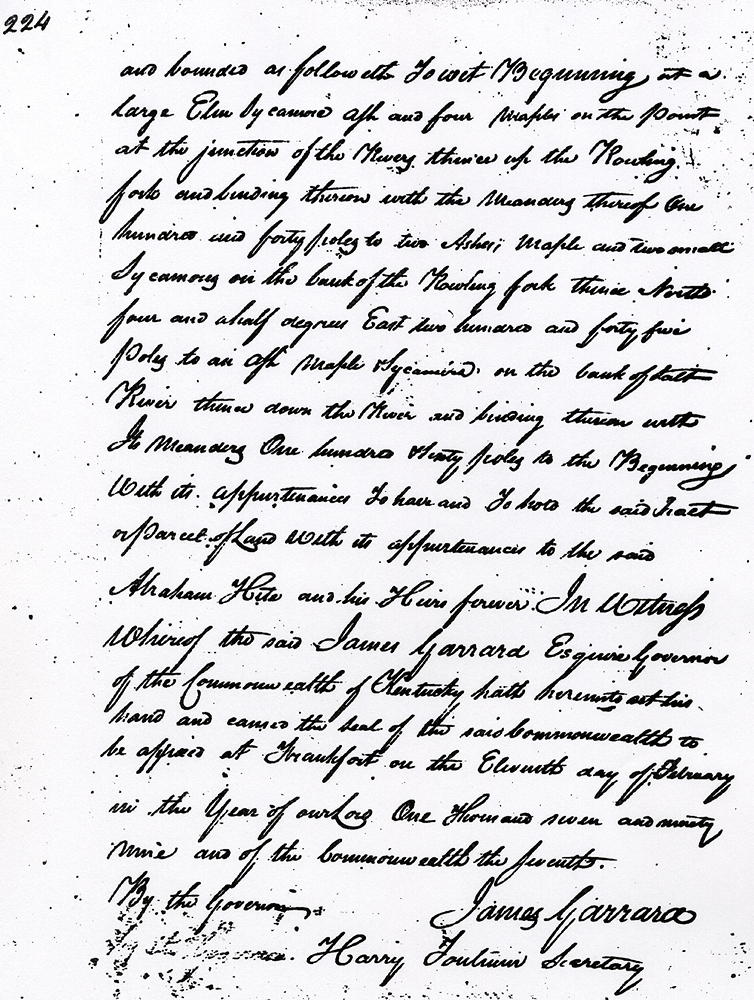 224
and bounded as followeth Towit Beginning at a
large Elm Sycamore ash and four Maples on the Point
at the junction of the Rivers thence up the Rowling
fork and binding thereon with the Meanders thereof One
hundred and forty poles to two Ashes, Maple and two small
Sycamores on the bank of the Rowling fork thence North
four and a half degrees East two hundred and forty five
Poles to an ash Maple & Sycamore on the bank of Salt
River thence down the River and binding thereon with
Its Meanders One hundred & Sixty poles to the Beginning
With its appurtenances To have and To hold the said Tract
or Parcel of Land With its appurtenances to the said
Abraham Hite and his Heirs forever. In Witness
Whereof the said James Garrard Esquire Governor
of the Commonwealth of Kentucky hath hereunto set his
hand and caused the Seal of the said Commonwealth to
be affixed at Frankfort on the Eleventh day of February
in the Year of our Lord One Thousand seven and ninety
Nine and of the Commonwealth the Seventh.
By the Governor James Garrard
Harry Toulmin Secretary